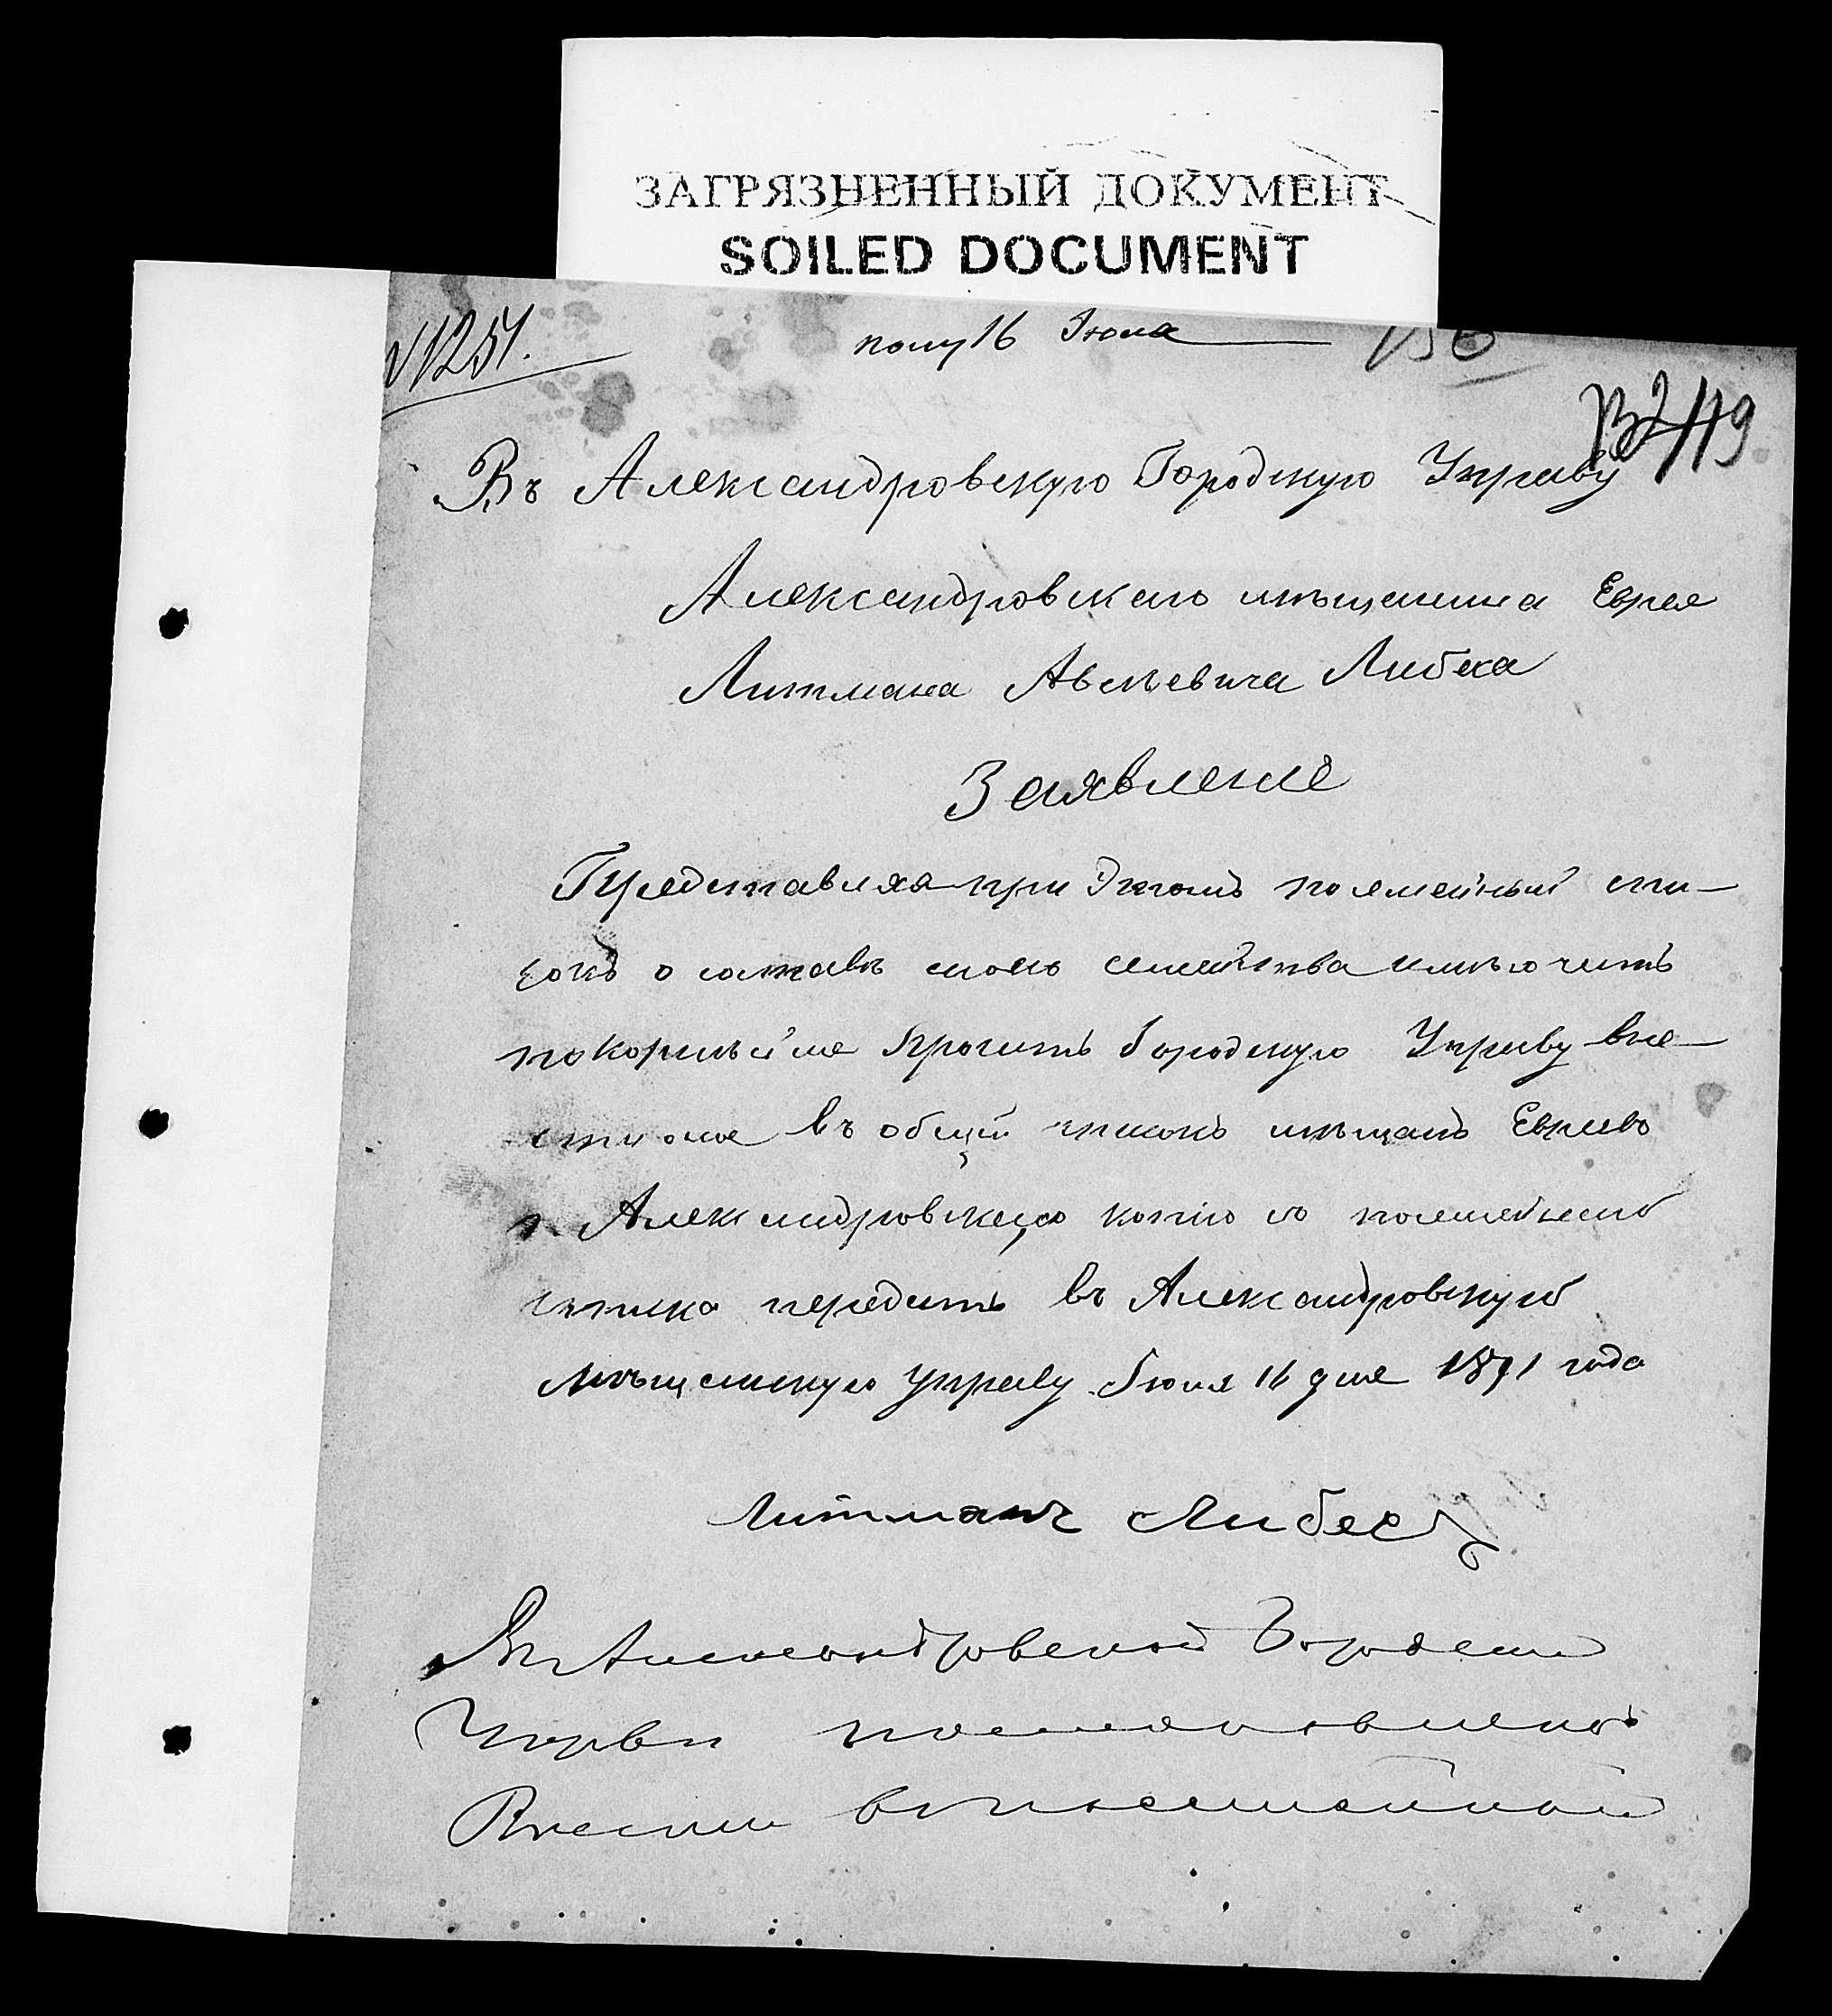 ЗАГРЯЗНЕННЫЙ ДОКУМЕНТ
SOILED DOCUMENT
N 251.
полу 16 Июля
Въ Александровскую Городскую Управу
Александровскаго мѣщанина Еврея
Литмана Авсѣевича Либеха
Заявленіе
Представляя при Этомъ посемейный спи-
сокъ о составѣ моего семейства имѣю честь
покорнѣйше просить Городскую Управу вне-
сти оное въ общій списокъ мѣщанъ Евреевъ
г. Александровска, копію со посемейнаго
списка передать въ Александровскую
Мѣщанскую управу. Іюля 16 дня 1891 года
Литманъ Либех
Въ Александровской Городской
Управѣ постановлено
Внести въ посемейный